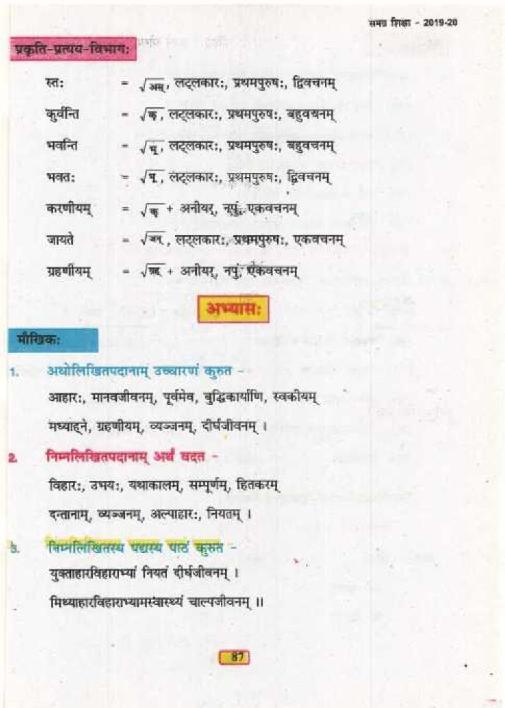 समग्र शिक्षा - 2019-20
प्रकृति-प्रत्यय-विभाग:
स्त: = √अस्, लट्लकार:, प्रथमपुरुष:, द्विवचनम्
कुर्वन्ति = √कृ, लट्लकार:, प्रथमपुरुष:, बहुवचनम्
भवन्ति = √भू, लट्लकार:, प्रथमपुरुष:, बहुवचनम्
भवत: = √भू, लट्लकार:, प्रथमपुरुष:, द्विवचनम्
करणीयम् = √कृ + अनीयर्, नपुं. एकवचनम्
जायते = √जन्, लट्लकार:, प्रथमपुरुष:, एकवचनम्
ग्रहणीयम् = √ग्रह + अनीयर्, नपुं, एकवचनम्
अभ्यास:
मौखिक:
1. अधोलिखितपदानाम् उच्चारणं कुरुत -
आहार:, मानवजीवनम्, पूर्वमेव, बुद्धिकार्याणि, स्वकीयम्
मध्याह्ने, ग्रहणीयम्, व्यञ्जनम्, दीर्घजीवनम् ।
2. निम्नलिखितपदानाम् अर्थं वदत -
विहार:, उभय:, यथाकालम्, सम्पूर्णम्, हितकरम्
दन्तानाम्, व्यञ्जनम्, अल्पाहार:, नियतम् ।
3. निम्नलिखितस्य पद्यस्य पाठं कुरुत -
युक्ताहारविहाराभ्यां नियतं दीर्घजीवनम् ।
मिथ्याहारविहाराभ्यामस्वास्थ्यं चाल्पजीवनम् ॥
87